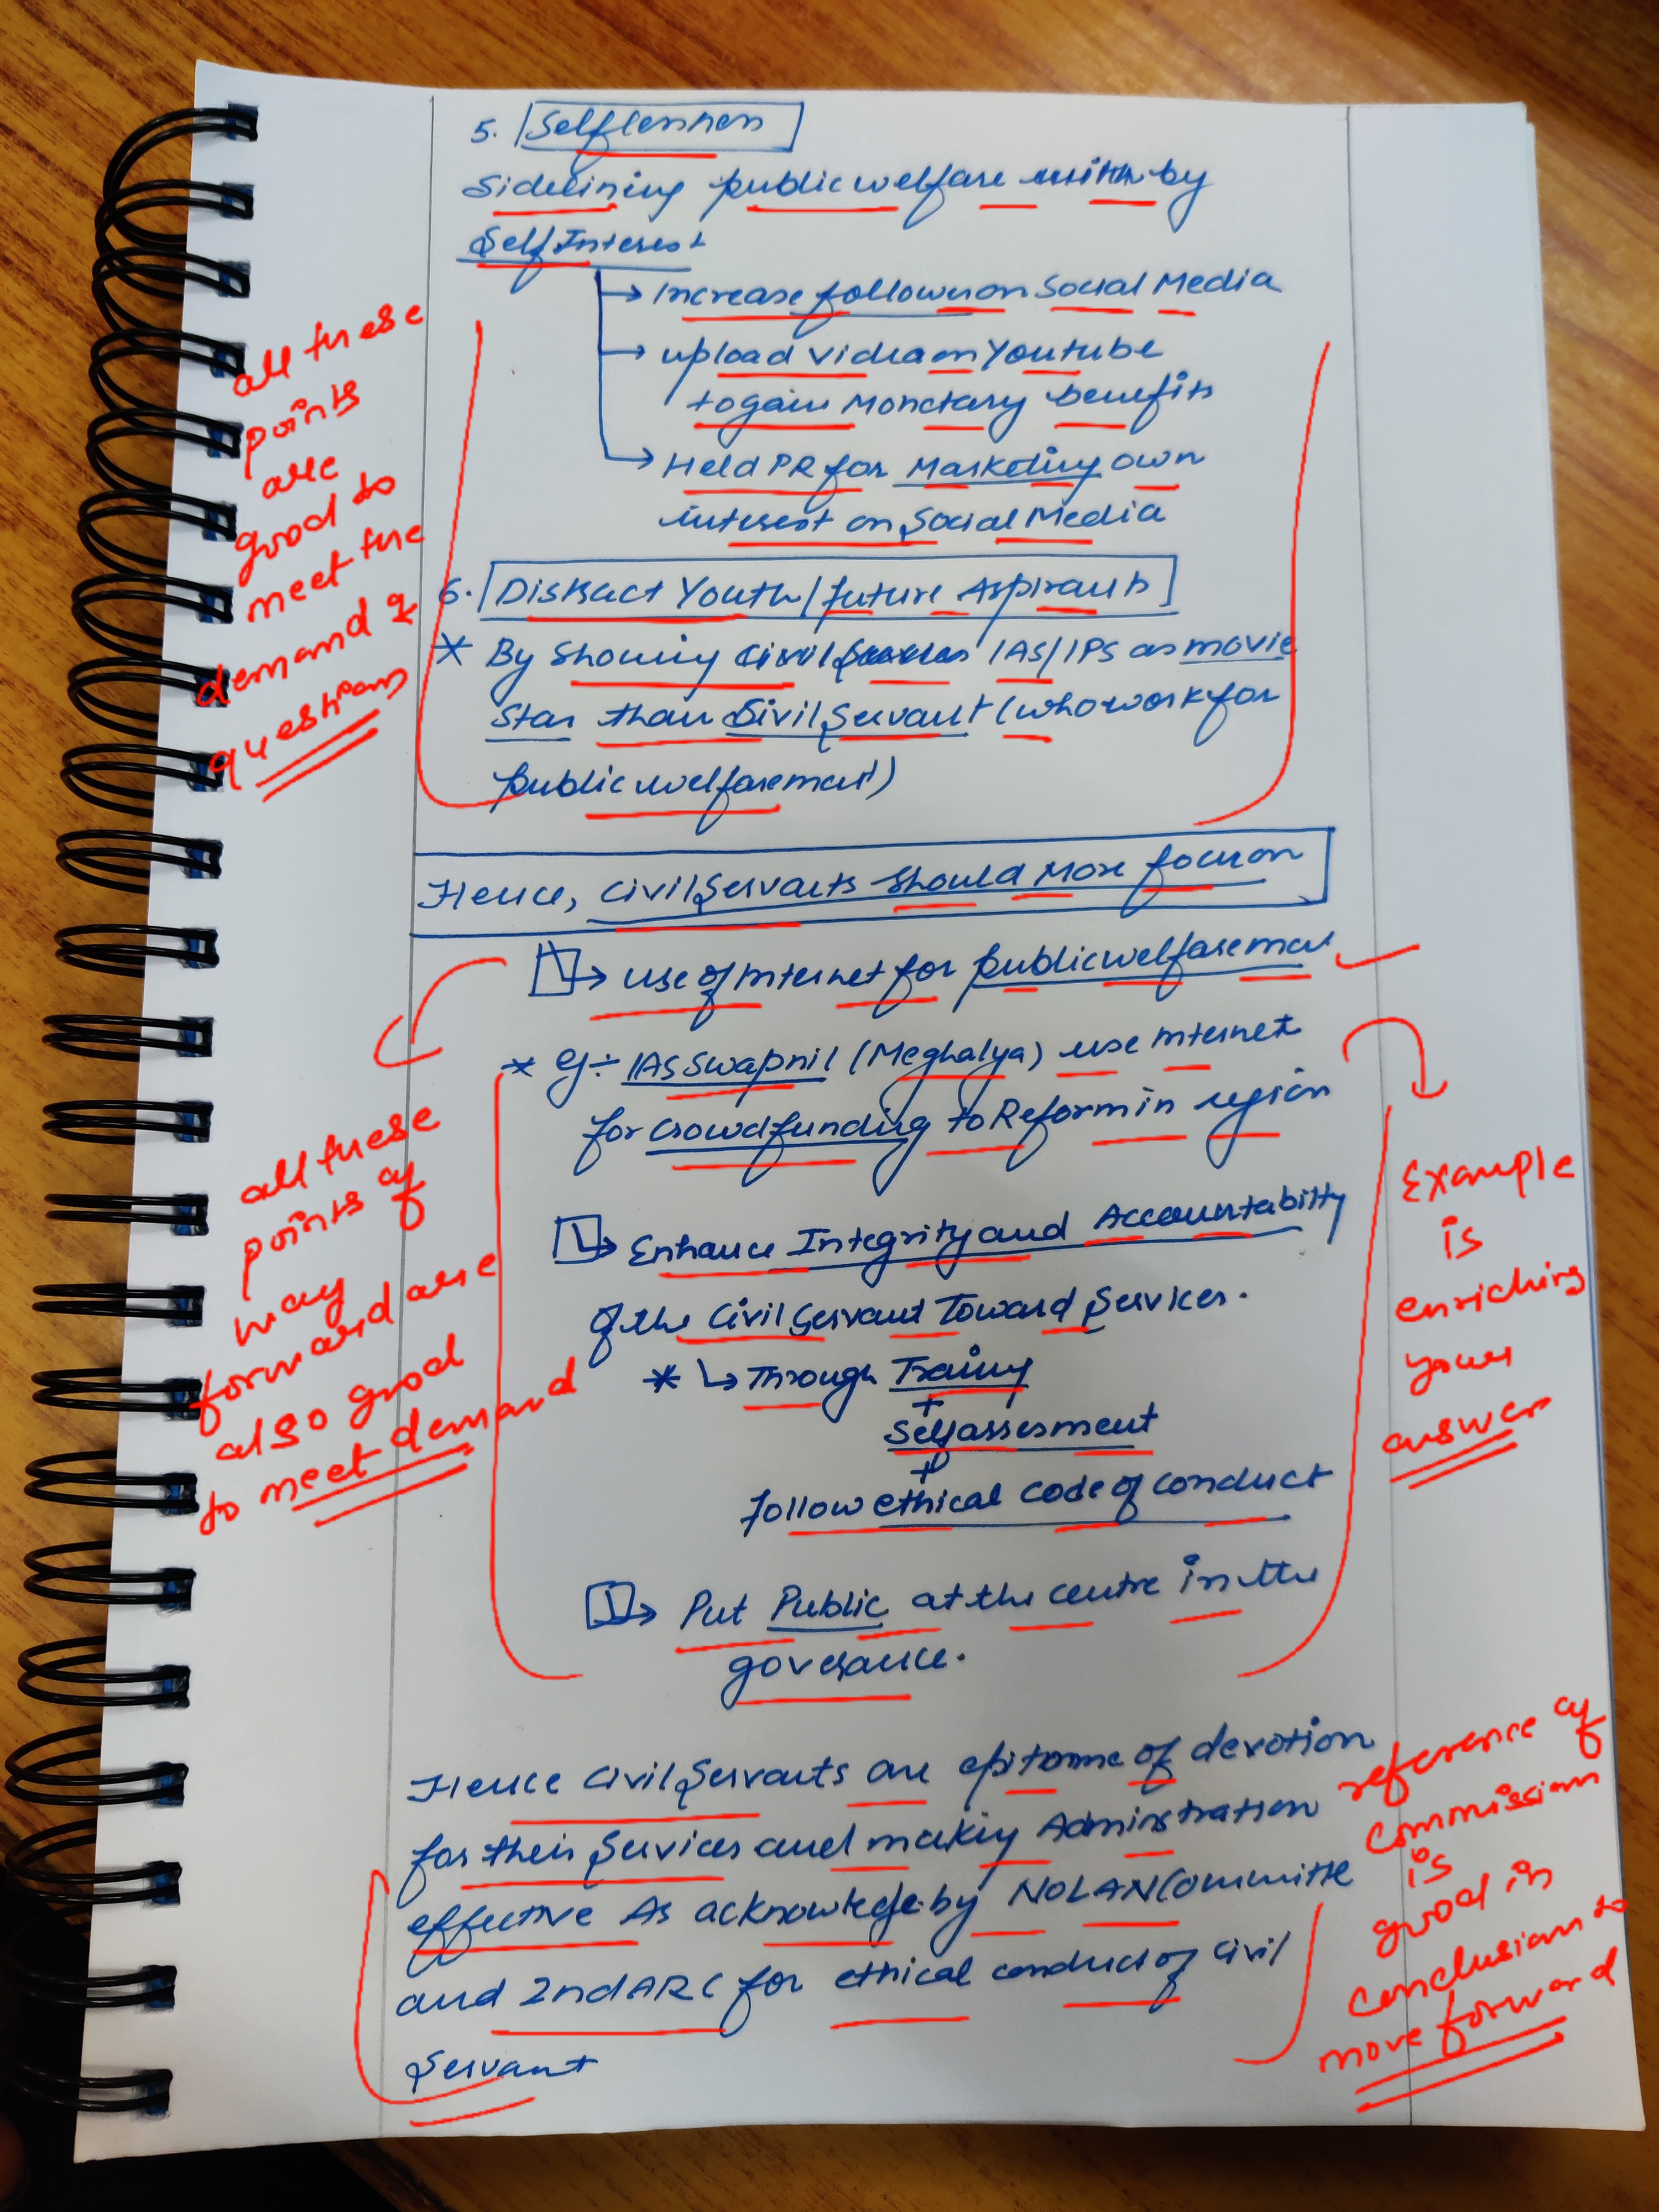 5. Selflessness
Sidelining public welfare by
Self Interest
→ Increase follower on Social Media
→ upload video on Youtube
to gain Monetary benefits
→ Held PR for Marketing own
interest on Social Media
all these
points
are
good to
meet the
demand of
question
6. Distract Youth / future Aspirants
* By showing Civil IAS/IPS as movie
Star than Civil Servant (who work for
public welfare man)
Hence, Civil Servants should More focus on
→ use of Internet for public welfare man
* eg ÷ IAS Swapnil (Meghalya) use Internet
for crowdfunding to Reform in region
→ Enhance Integrity and Accountability
of the Civil Servant Toward Services.
* ↳ Through Training
+
Self assesment
+
follow ethical code of conduct
→ Put Public at the centre in the
governance.
all these
points of
way
forward are
also good
to meet demand
Example
is
enriching
your
answer
Hence Civil Servants are epitome of devotion
for their Services and making Administration
effective As acknowledge by NOLAN Committe
and 2nd ARC for ethical conduct of Civil
Servant
reference of
commission
is
good in
conclusion to
move forward